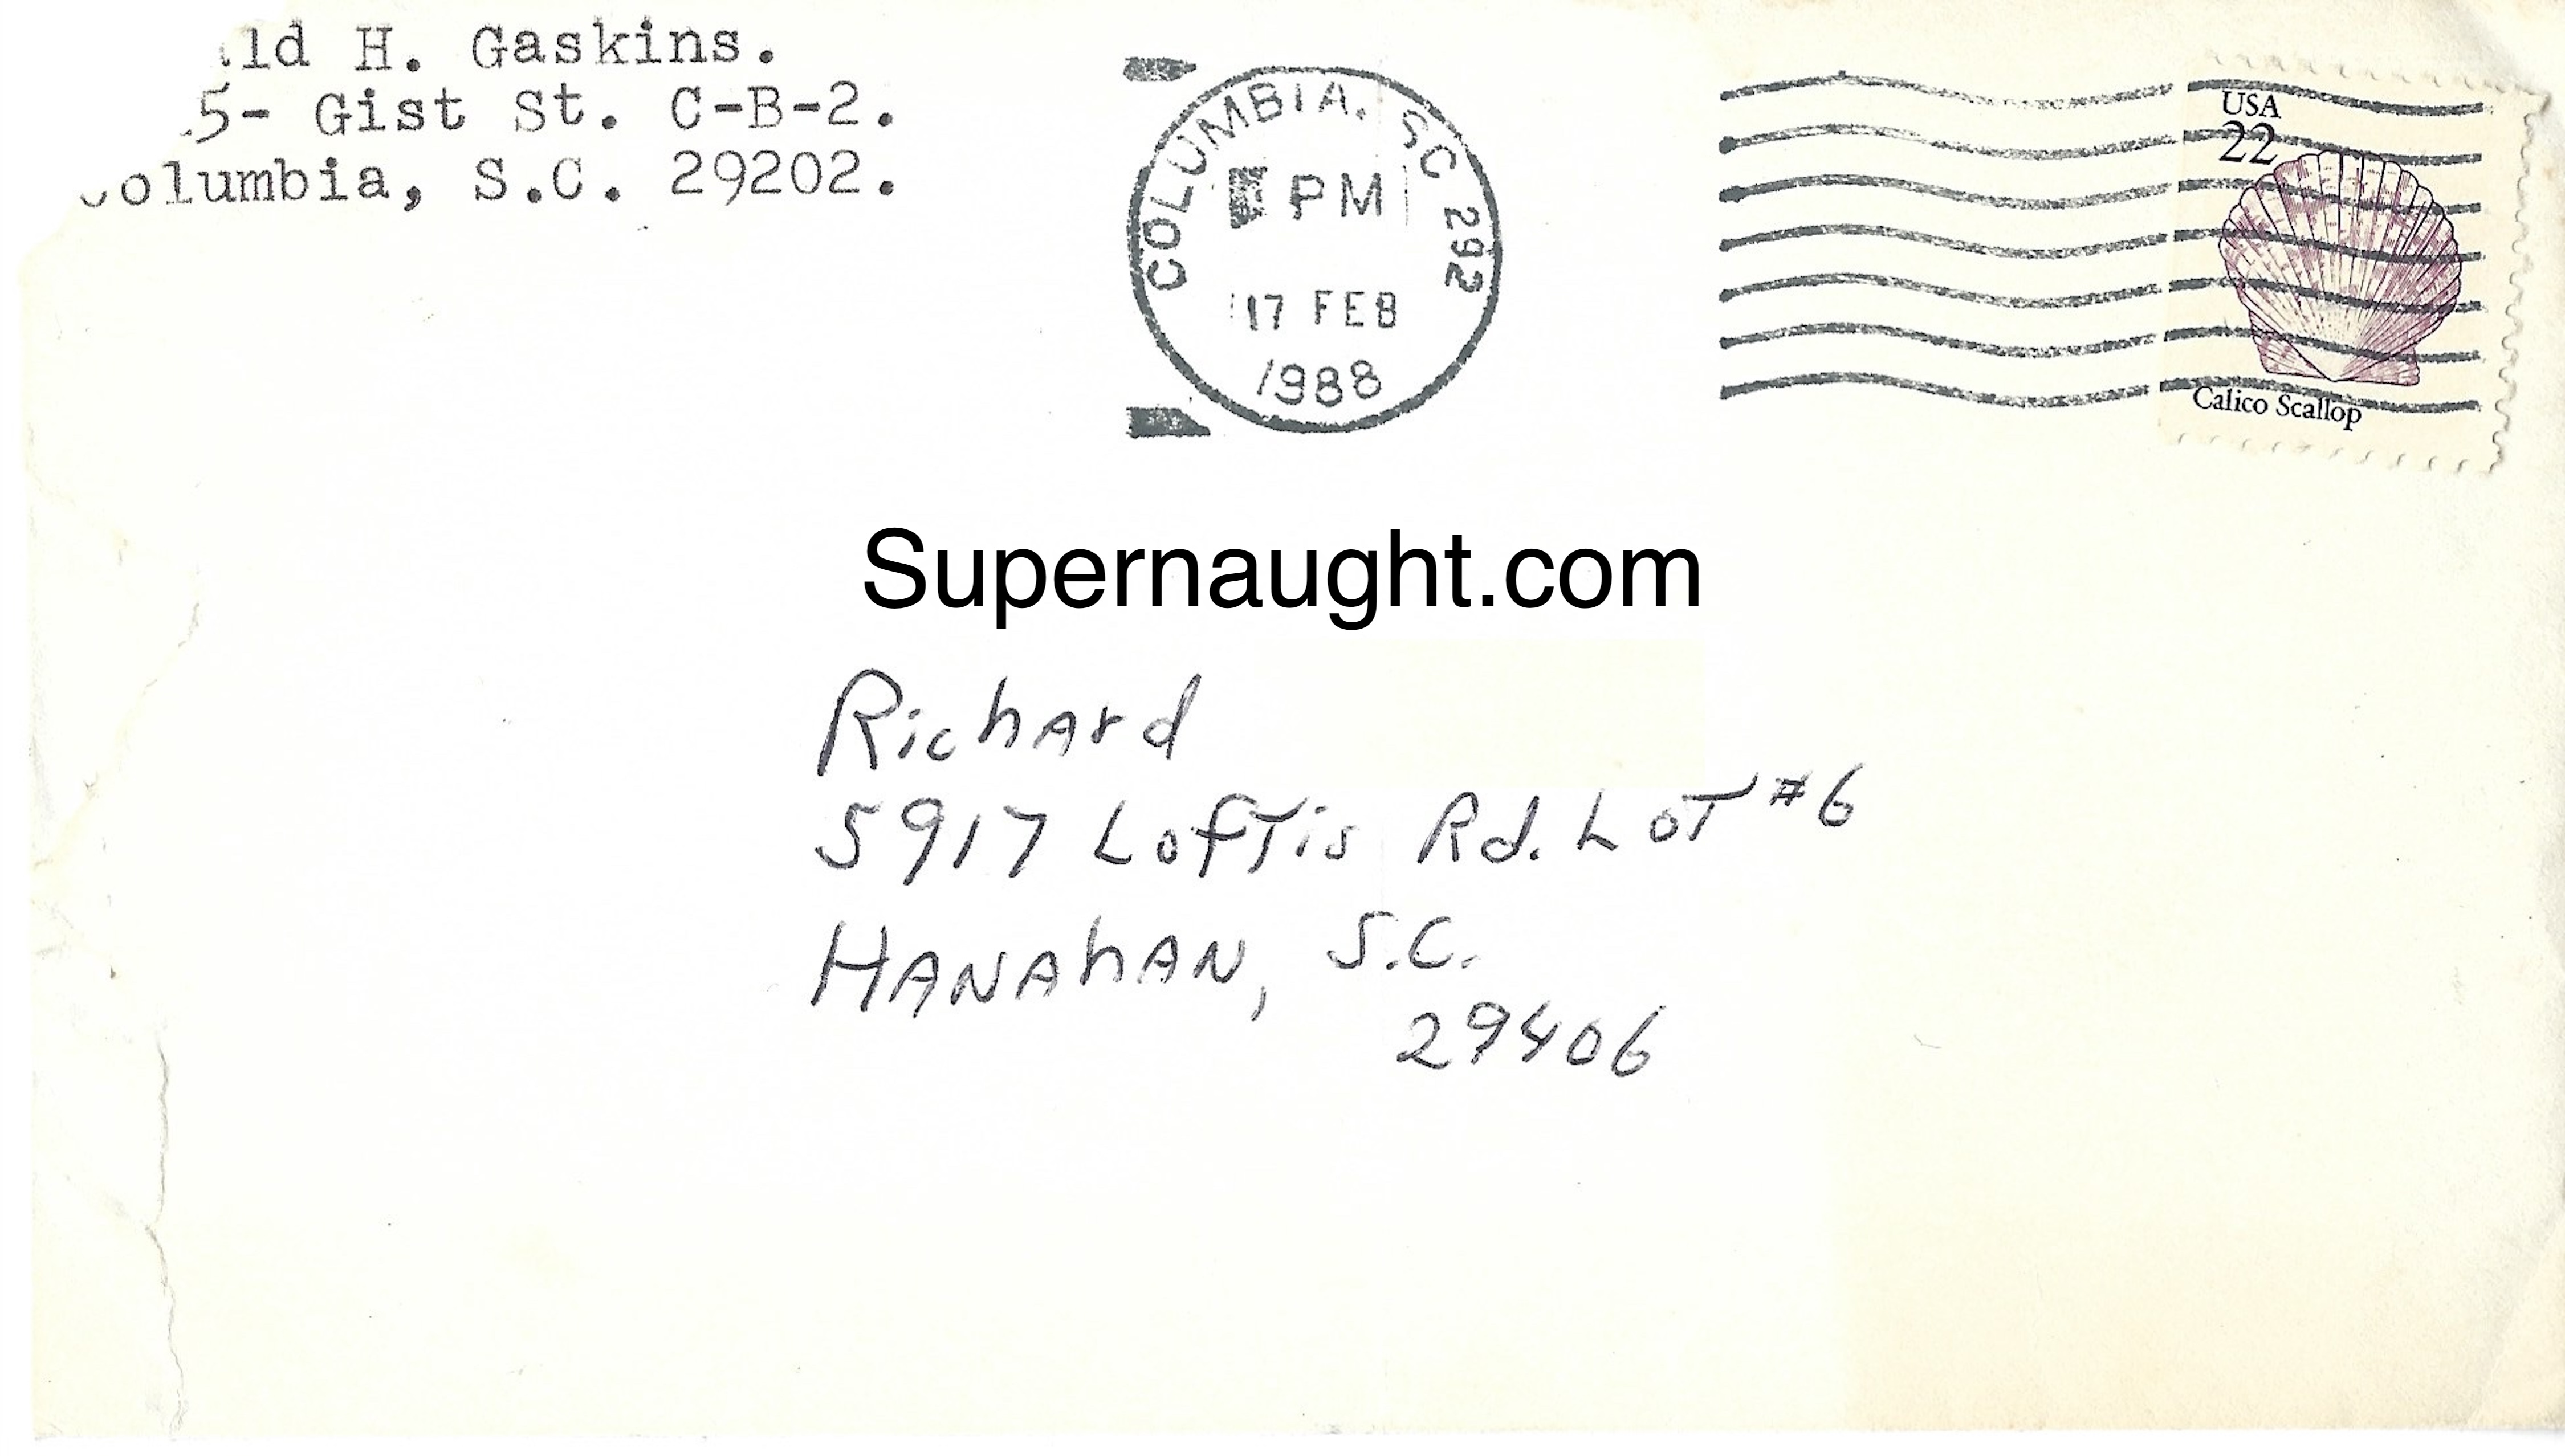 ld H. Gaskins.
5- Gist St. C-B-2.
Columbia, S.C. 29202.
COLUMBIA, SC 292
PM
17 FEB
1988
USA
22
Calico Scallop
Supernaught.com
Richard
5917 Loftis Rd. Lot #6
HANAhAN, S.C.
29406